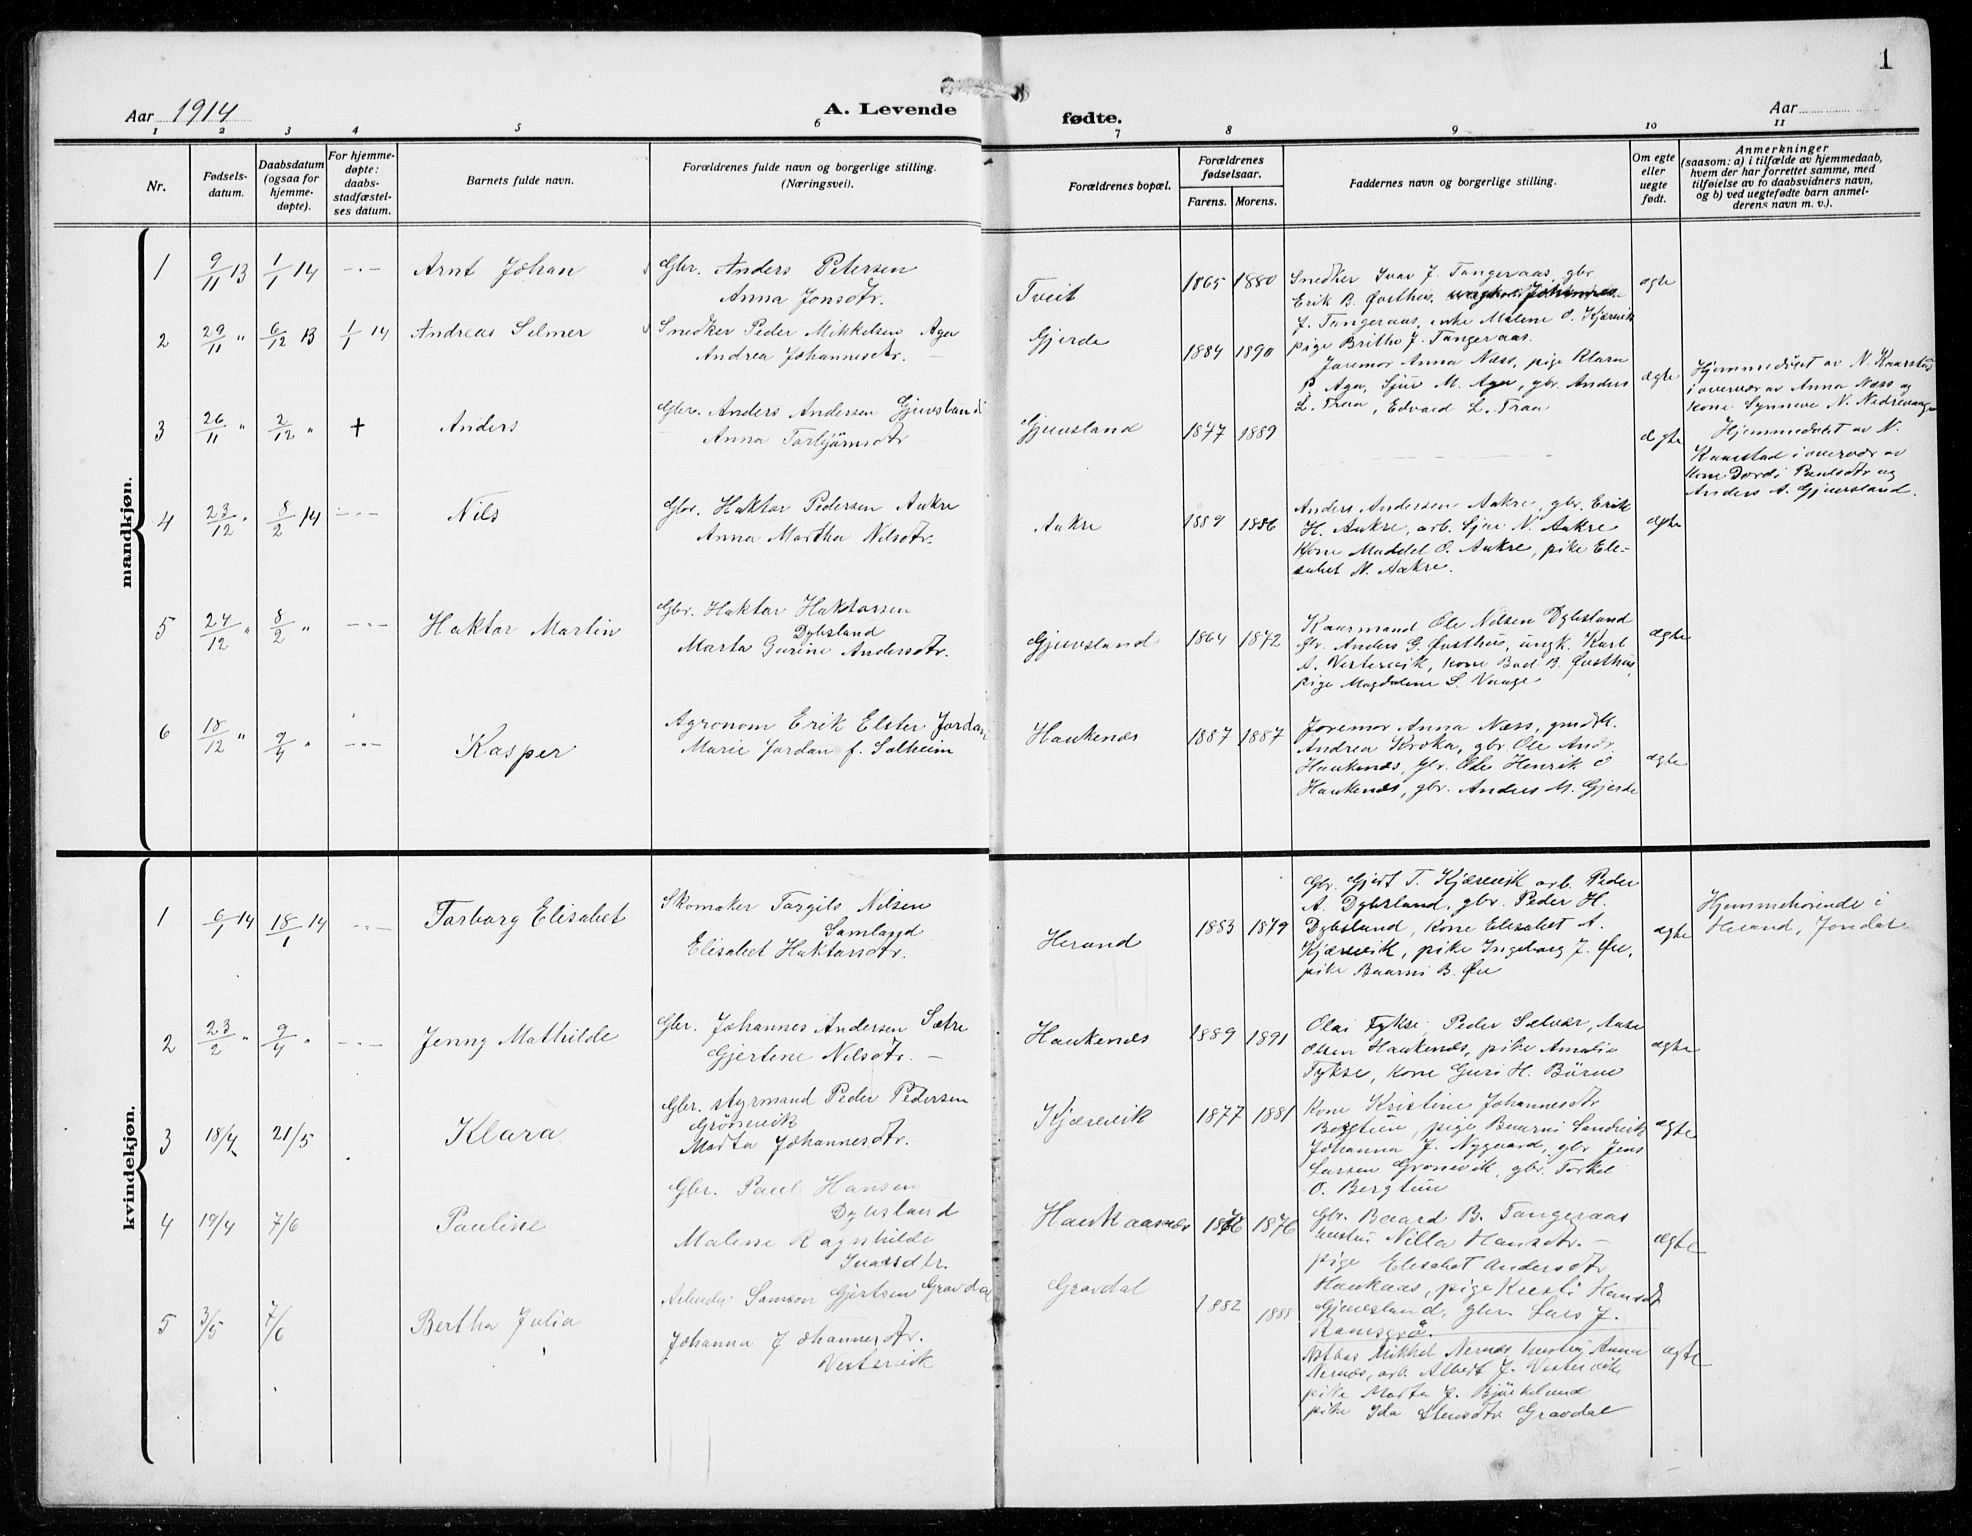 1
Aar 1914
A. Levende
fødte.
Aar
1 2 3 4 5 6 7 8 9 10 11
Nr.
Fødsels-
datum.
Daabsdatum
(ogsaa for
hjemme-
døpte).
For hjemme-
døpte:
daabs-
stadfæstel-
ses datum.
Barnets fulde navn.
Forældrenes fulde navn og borgerlige stilling.
(Næringsvei).
Forældrenes bopæl.
Forældrenes
fødselsaar.
Farens. Morens.
Faddernes navn og borgerlige stilling.
Om egte
eller
uegte
født.
Anmerkninger
(saasom: a) i tilfælde av hjemmedaab,
hvem der har forrettet samme, med
tilføielse av to daabsvidners navn,
og b) ved uegtefødte barn anmel-
derens navn m. v.).
mandkjøn.
1 9/11 13 1/1 14 - " - Arnt Johan
Gbr. Anders Petersen
Anna Jonsdtr.
Tveit 1865 1880
Snedker Ivar J. Tangeraas, gbr.
Erik B. Østhus,
J. Tangeraas, enke Malene O. Kjærevik
pige Britha J. Tangeraas.
ægte
2 29/11 " 6/12 13 1/1 14 Andreas Selmer
Snedker Peder Mikkelsen Aga
Andrea Johannesdtr. -
Gjerde 1884 1890
Joremor Anna Næss, pige Klara
P. Aga, Sjur M. Aga, gbr. Anders
L. Traa, Edvard L. Traa
ægte
Hjemmedøbt av N. Kaarstad
i overvær av Anna Næss og
kone Synneve N. Nedrevaage
3 26/11 " 2/12 " + Anders
Gbr. Anders Andersen Gjuvsland
Anna Torbjørnsdtr
Gjuvsland 1877 1889
ægte
Hjemmedøbt av N.
Kaarstad i overvær av
kone Dordi Paulsdtr og
Anders A. Gjuvsland.
4 23/12 " 8/2 14 - " - Nils
Gbr. Haktor Pedersen Aakre
Anna Martha Nilsdtr.
Aakre 1889 1886
Anders Andersen Aakre, gbr. Erik
H. Aakre, arb. Sjur N. Aakre
Kone Maddel O. Aakre, pike Ele-
sabet N. Aakre.
ægte
5 24/12 " 8/2 " - " - Haktor Martin
Gbr. Haktor Haktorsen
Dybsland
Marta Gurine Andersdtr.
Gjuvsland 1864 1872
Kaarmand Ole Nilsen Dybsland
Gbr. Anders G. Østhus, ungk. Karl
A. Vestrevik, kone Bod B. Østhus,
pige Magdalene S. Vaage
ægte
6 18/12 " 9/4 " - " - Kasper
Agronom Erik Elster Jordan
Marie Jordan f. Solheim
Haukenæs 1887 1887
Joremor Anna Næss,
Andrea Kroka, gbr. Ole Andr.
Haukenæs, gbr. Ole Henrik O
Haukenæs, gbr. Anders M. Gjerde
ægte
kvindekjøn.
1 6/1 14 18/1 14 - " - Torborg Elisabet
Skomaker Torgils Nilsen
Samland
Elisabet Haktorsdtr.
Herand 1883 1879
Gbr. Gjert T. Kjærevik arb. Peder
A. Dybsland, gbr. Peder H.
Dybsland, kone Elisabet A.
Kjærevik, pike Ingeborg J. Øie,
pike Baarni B. Øie
ægte
Hjemmehørende i
Herand, Jondal.
2 23/2 " 9/4 " - " - Jenny Mathilde
Gbr. Johannes Andersen Sætre
Gjertine Nilsdtr. -
Haukenæs 1889 1891
Olai Fykse, Peder Solvær, Aase
Olsen Haukenæs, pike Amalia
Fykse, kone Guri H. Børve
ægte
3 18/4 21/5 Klara
Gbr. styrmand Peder Pedersen
Grønevik
Marta Johannesdtr.
Kjærevik 1877 1881
Kone Kristine Johannesdtr
Bergtun, pige Baarni Sandvik
Johanna J. Nygaard, gbr Jens
Larsen Gronevik, gbr. Torkel
O. Bergtun
ægte
4 19/4 7/6 Pauline
Gbr. Paul Hansen
Dybsland
Malene Ragnhilde
Ivarsdtr.
Haukaasnæs 1876
Gbr. Baard B. Tangeraas
hustru Nilla Hansdtr. -
pige Elisabet Andersdtr
Haukaas, pige Kresti Hansdtr
Gjuvsland, gbr. Lars J.
Ramsgrø.
ægte
5 3/5 7/6 Bertha Julia
Arbeider Samson Gjertsen Gravdal
Johanna Johannesdtr.
Vestervik
Gravdal 1882 1888
Notbas Mikkel Nernæs hustru Anna
Nernæs, arb. Albert J. Vestervik
pike Marta J. Bjørkelund
pike Ida Gravdal
ægte